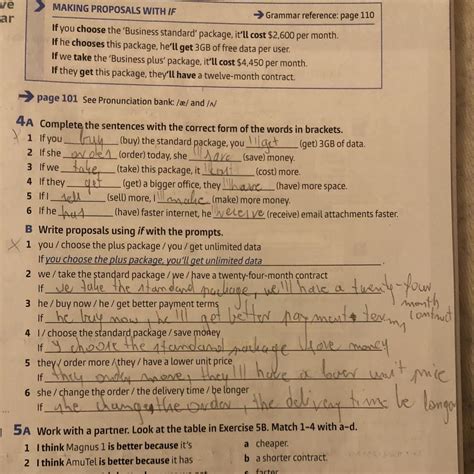 ve
ar
MAKING PROPOSALS WITH IF
Grammar reference: page 110
If you choose the 'Business standard' package, it'll cost $2,600 per month.
If he chooses this package, he'll get 3GB of free data per user.
If we take the 'Business plus' package, it'll cost $4,450 per month.
If they get this package, they'll have a twelve-month contract.
page 101 See Pronunciation bank: /æ/ and /ʌ/
4A Complete the sentences with the correct form of the words in brackets.
1 If you buy (buy) the standard package, you 'll get (get) 3GB of data.
2 If she order (order) today, she 'll save (save) money.
3 If we take (take) this package, it 'll cost (cost) more.
4 If they get (get) a bigger office, they 'll have (have) more space.
5 If I sell (sell) more, I 'll make (make) more money.
6 If he has (have) faster internet, he 'll receive (receive) email attachments faster.
B Write proposals using if with the prompts.
1 you / choose the plus package / you / get unlimited data
If you choose the plus package, you'll get unlimited data
2 we / take the standard package / we / have a twenty-four-month contract
If we take the standard package, we'll have a twenty-four month contract
3 he / buy now / he / get better payment terms
If he buy now, he 'll get better payment terms
4 I / choose the standard package / save money
If I choose the standard package money
5 they / order more / they / have a lower unit price
If they order more, they'll have a lower unit price
6 she / change the order / the delivery time / be longer
If she change the order, the delivery time be longer
5A Work with a partner. Look at the table in Exercise 5B. Match 1–4 with a–d.
1 I think Magnus 1 is better because it's
a cheaper.
2 I think AmuTel is better because it has
b a shorter contract.
c faster